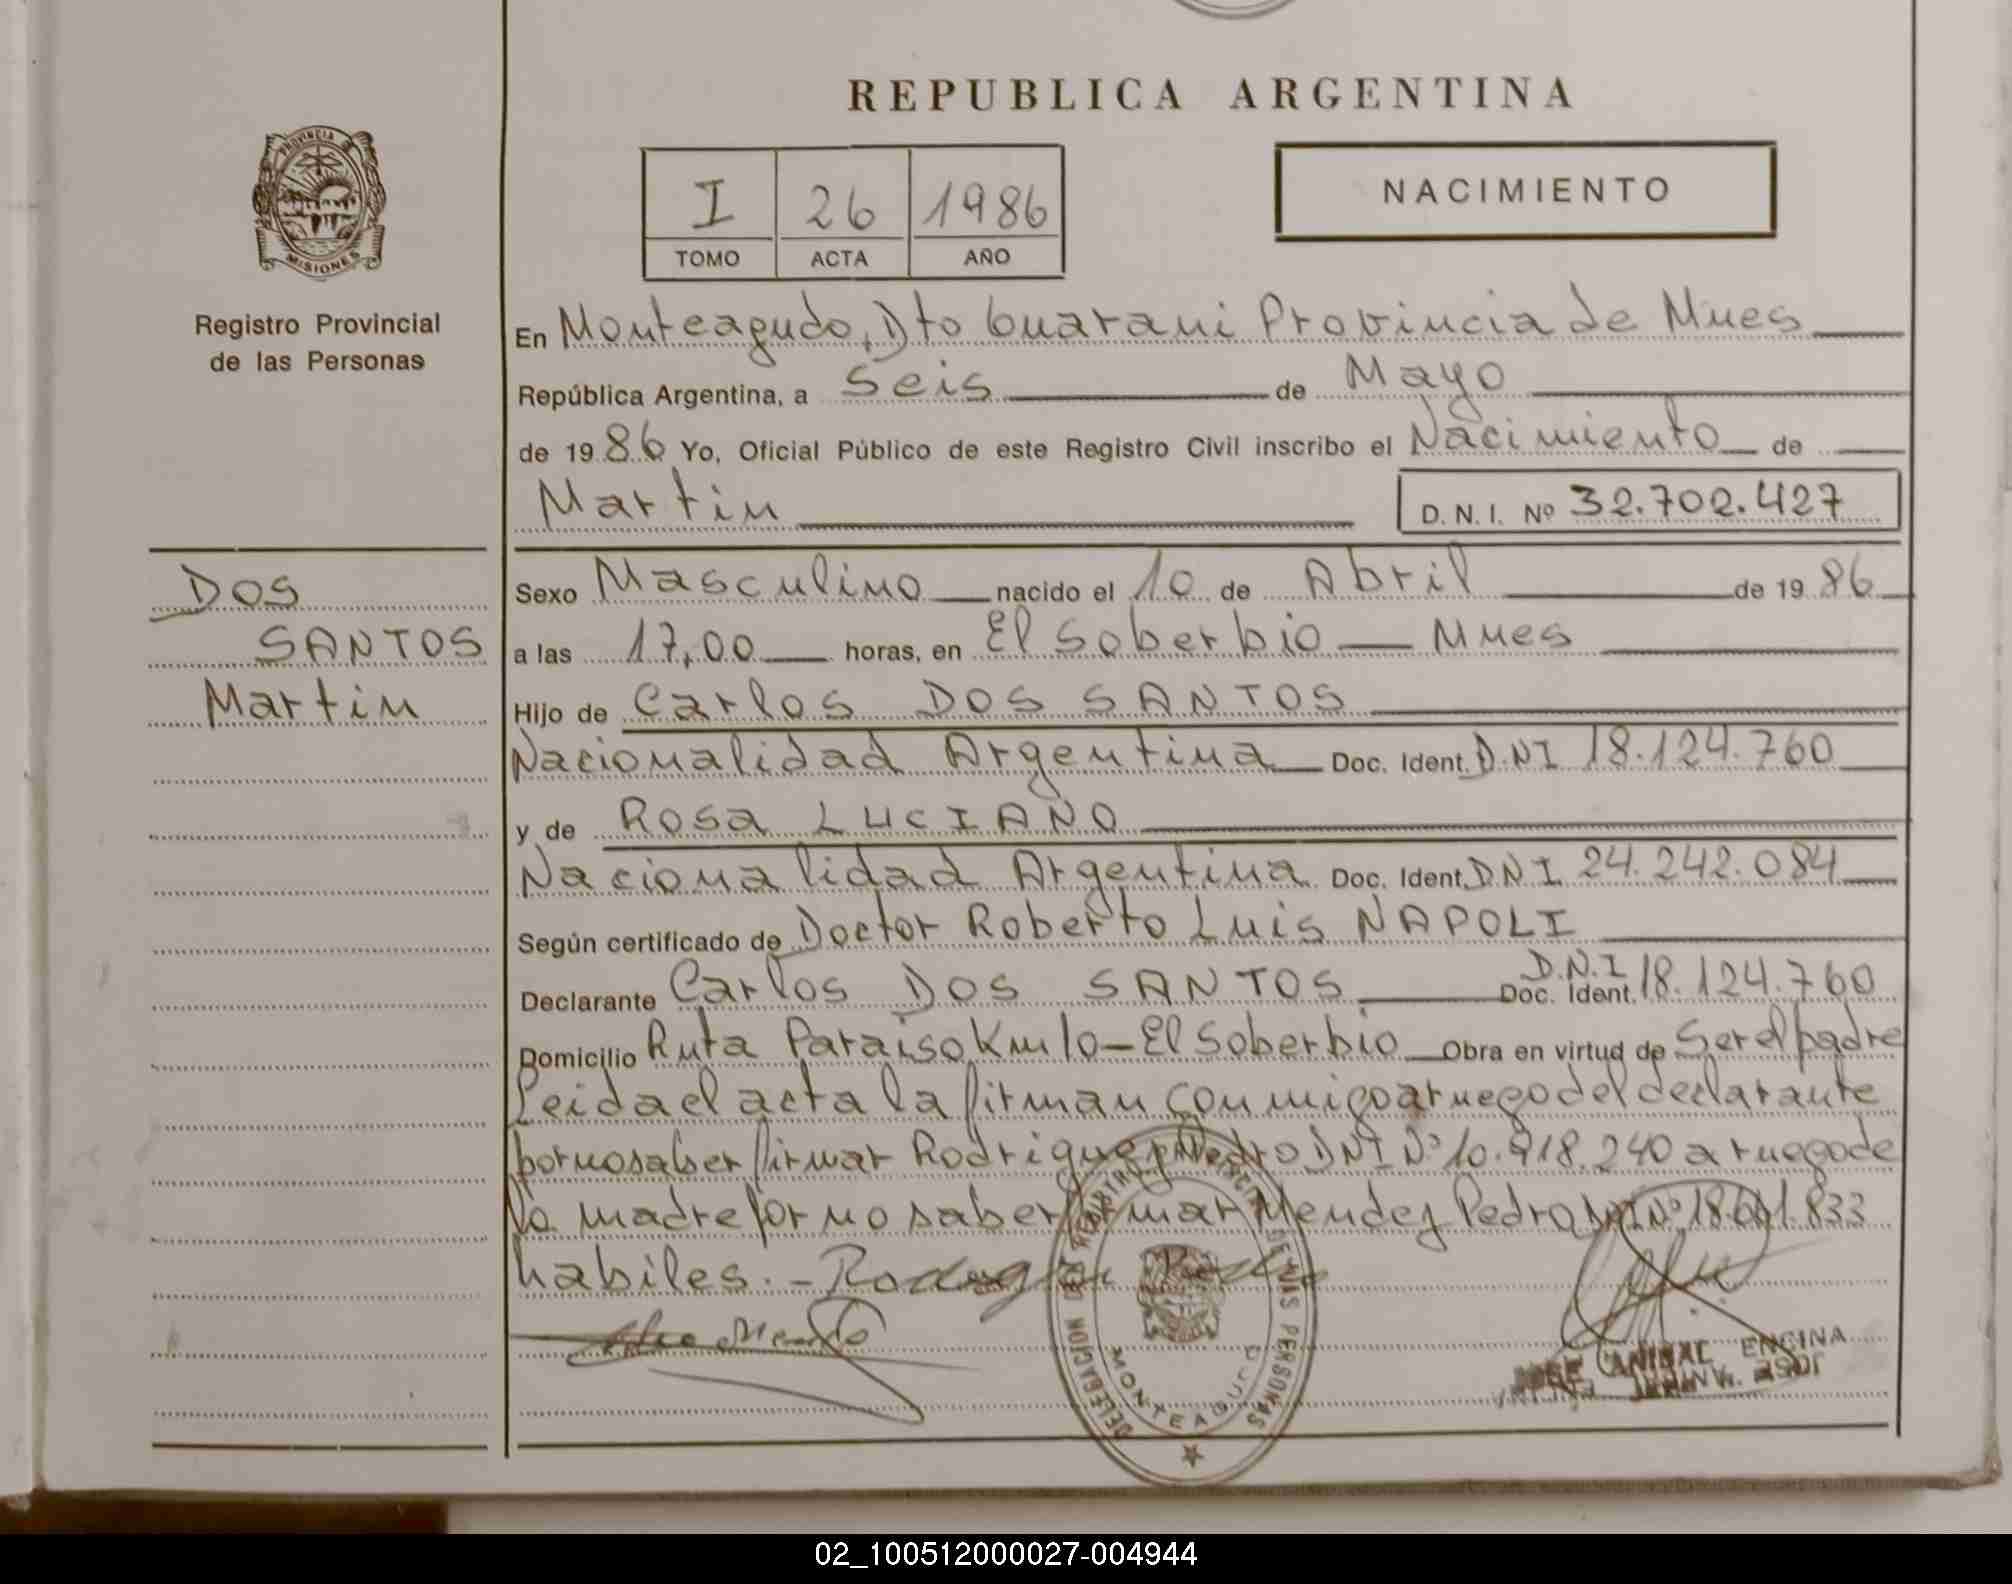 REPUBLICA ARGENTINA
PROVINCIA DE
MISIONES
Registro Provincial
de las Personas
I 26 1986
TOMO ACTA AÑO
NACIMIENTO
En Monteagudo, Dto Guarani Provincia de Mnes
República Argentina, a Seis de Mayo
de 1986 Yo, Oficial Público de este Registro Civil inscribo el Nacimiento de
Martin D. N. I. Nº 32.702.427
DOS
SANTOS
Martin
Sexo Masculino nacido el 10 de Abril de 1986
a las 17,00 horas, en El Soberbio — Mnes
Hijo de Carlos DOS SANTOS
Nacionalidad Argentina Doc. Ident. D.NI 18.124.760
y de Rosa LUCIANO
Nacionalidad Argentina Doc. Ident. DNI 24.242.084
Según certificado de Doctor Roberto Luis NAPOLI
Declarante Carlos DOS SANTOS Doc. Ident. D.N.I 18.124.760
Domicilio Ruta Paraiso Km 10 — El Soberbio Obra en virtud de Ser el padre
Leida el acta la firman conmigo a ruego del declarante
por no saber firmar Rodriguez Pedro DNI Nº 10.918.240 a ruego de
la madre por no saber firmar Mendez Pedro DNI Nº 18.        .833
habiles. -
DELEGACION DEL REGISTRO PROVINCIAL DE LAS PERSONAS
MONTEAGUDO
ANIBAL ENCINA
02_100512000027-004944